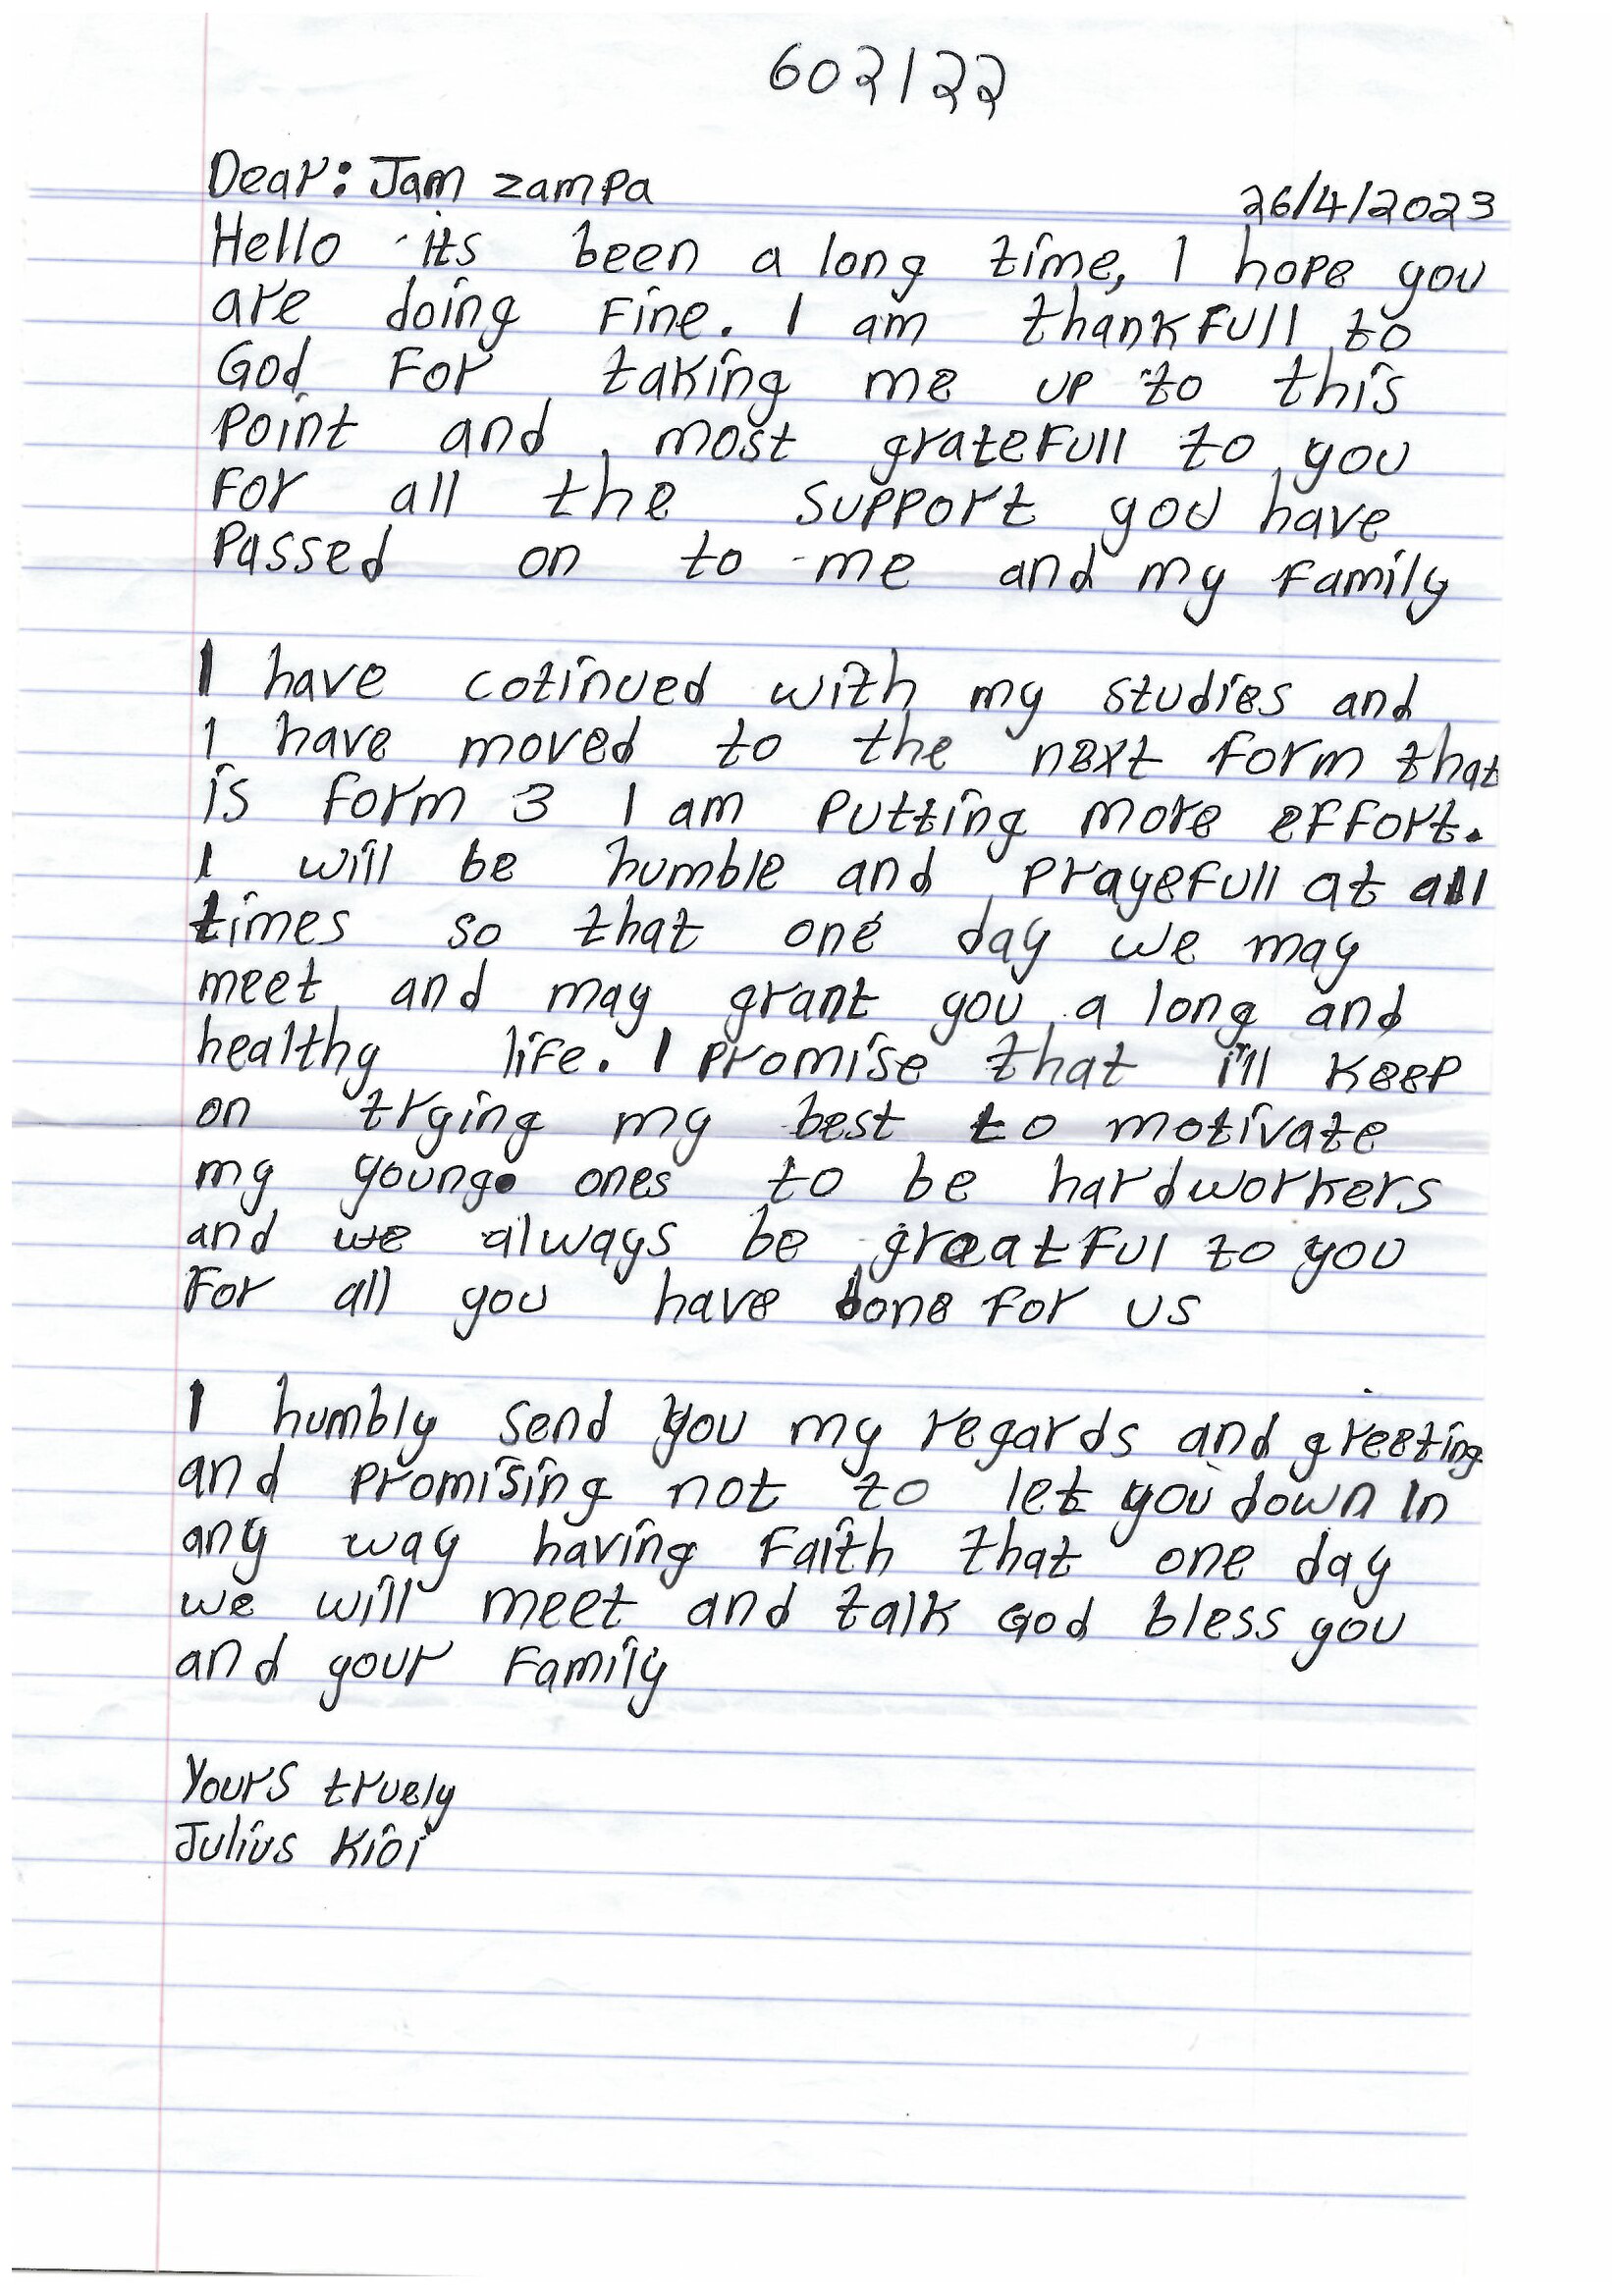 602122
Dear: Jam zampa
26/4/2023
Hello its been a long time, I hope you
are doing Fine. I am thankFull to
God For taking me up to this
Point and most grateFull to you
For all the support you have
Passed on to me and my Family
I have cotinued with my studies and
I have moved to the next Form that
is Form 3 I am Putting more eFFort.
I will be humble and PrayeFull at all
times so that one day we may
meet and may grant you a long and
healthy liFe. I Promise that i'll keep
on trying my best to motivate
my young ones to be hardworkers
and we always be greatFul to you
For all you have done For us
I humbly send you my regards and greeting
and Promising not to let you down In
any way having Faith that one day
we will meet and talk God bless you
and your Family
Yours truely
Julius Kioi